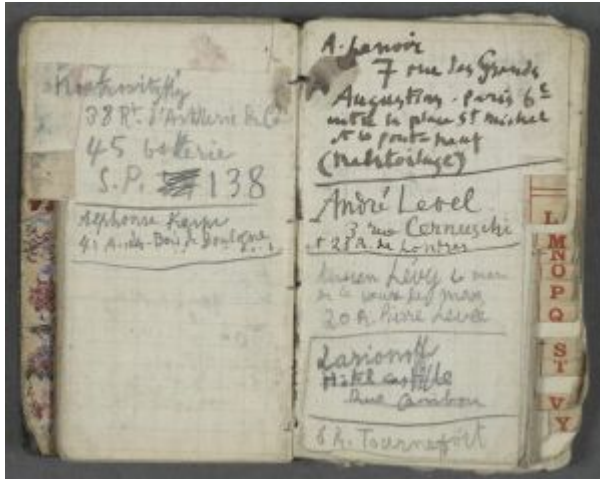 38 Rt. d'Artillerie
45 batterie
S.P. 138
Alphonse
41 A. des Bois de Boulogne
A. Lenoir
7 rue des Grands
Augustins - Paris 6e
entre la place St michel
et le pont neuf
André Level
3 rue Cernuschi
28 R. de Londres
Lucien Lévy
20 R. Pierre Levée
Larionoff
Hôtel Castille
Rue Cambon
6 R. Tournefort
L
M
N
O
P
Q
S
T
V
Y